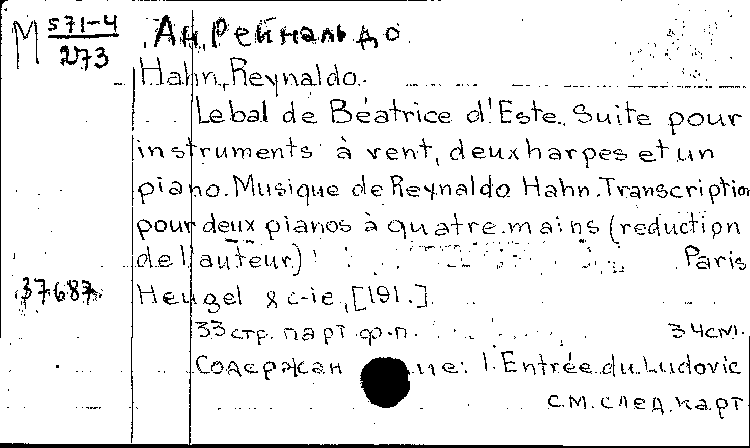 М 571-4
273
Ан, Рейнальдо.
Hahn, Reynaldo.
Le bal de Béatrice d'Este. Suite pour
instruments à vent, deux harpes et un
piano. Musique de Reynaldo Hahn. Transcription
pour deux pianos à quatre mains (reduction
de l'auteur)
Paris
37687
Heugel & C-ie, [191.]
33 стр. парт ф.п.
34 см.
Содержан ие: 1. Entrée du Ludovic
см. след. карт